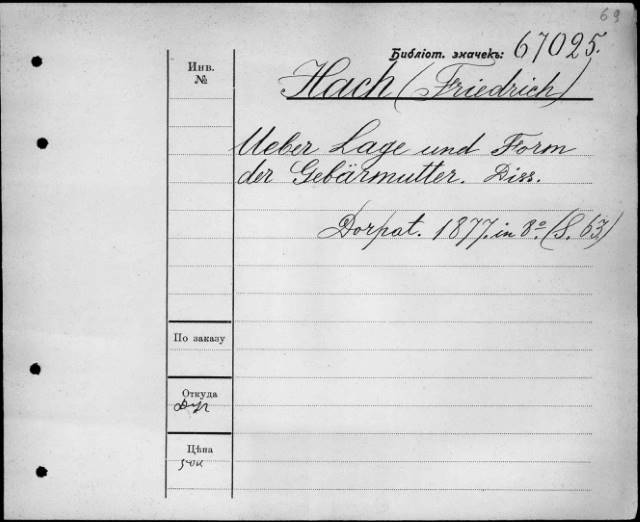 69
Библіот. значекъ: 67025.
Инв.
№
Hach (Friedrich)
Ueber Lage und Form
der Gebärmutter. Diss.
Dorpat. 1877. in 8º. (S. 63)
По заказу
Откуда
Цѣна